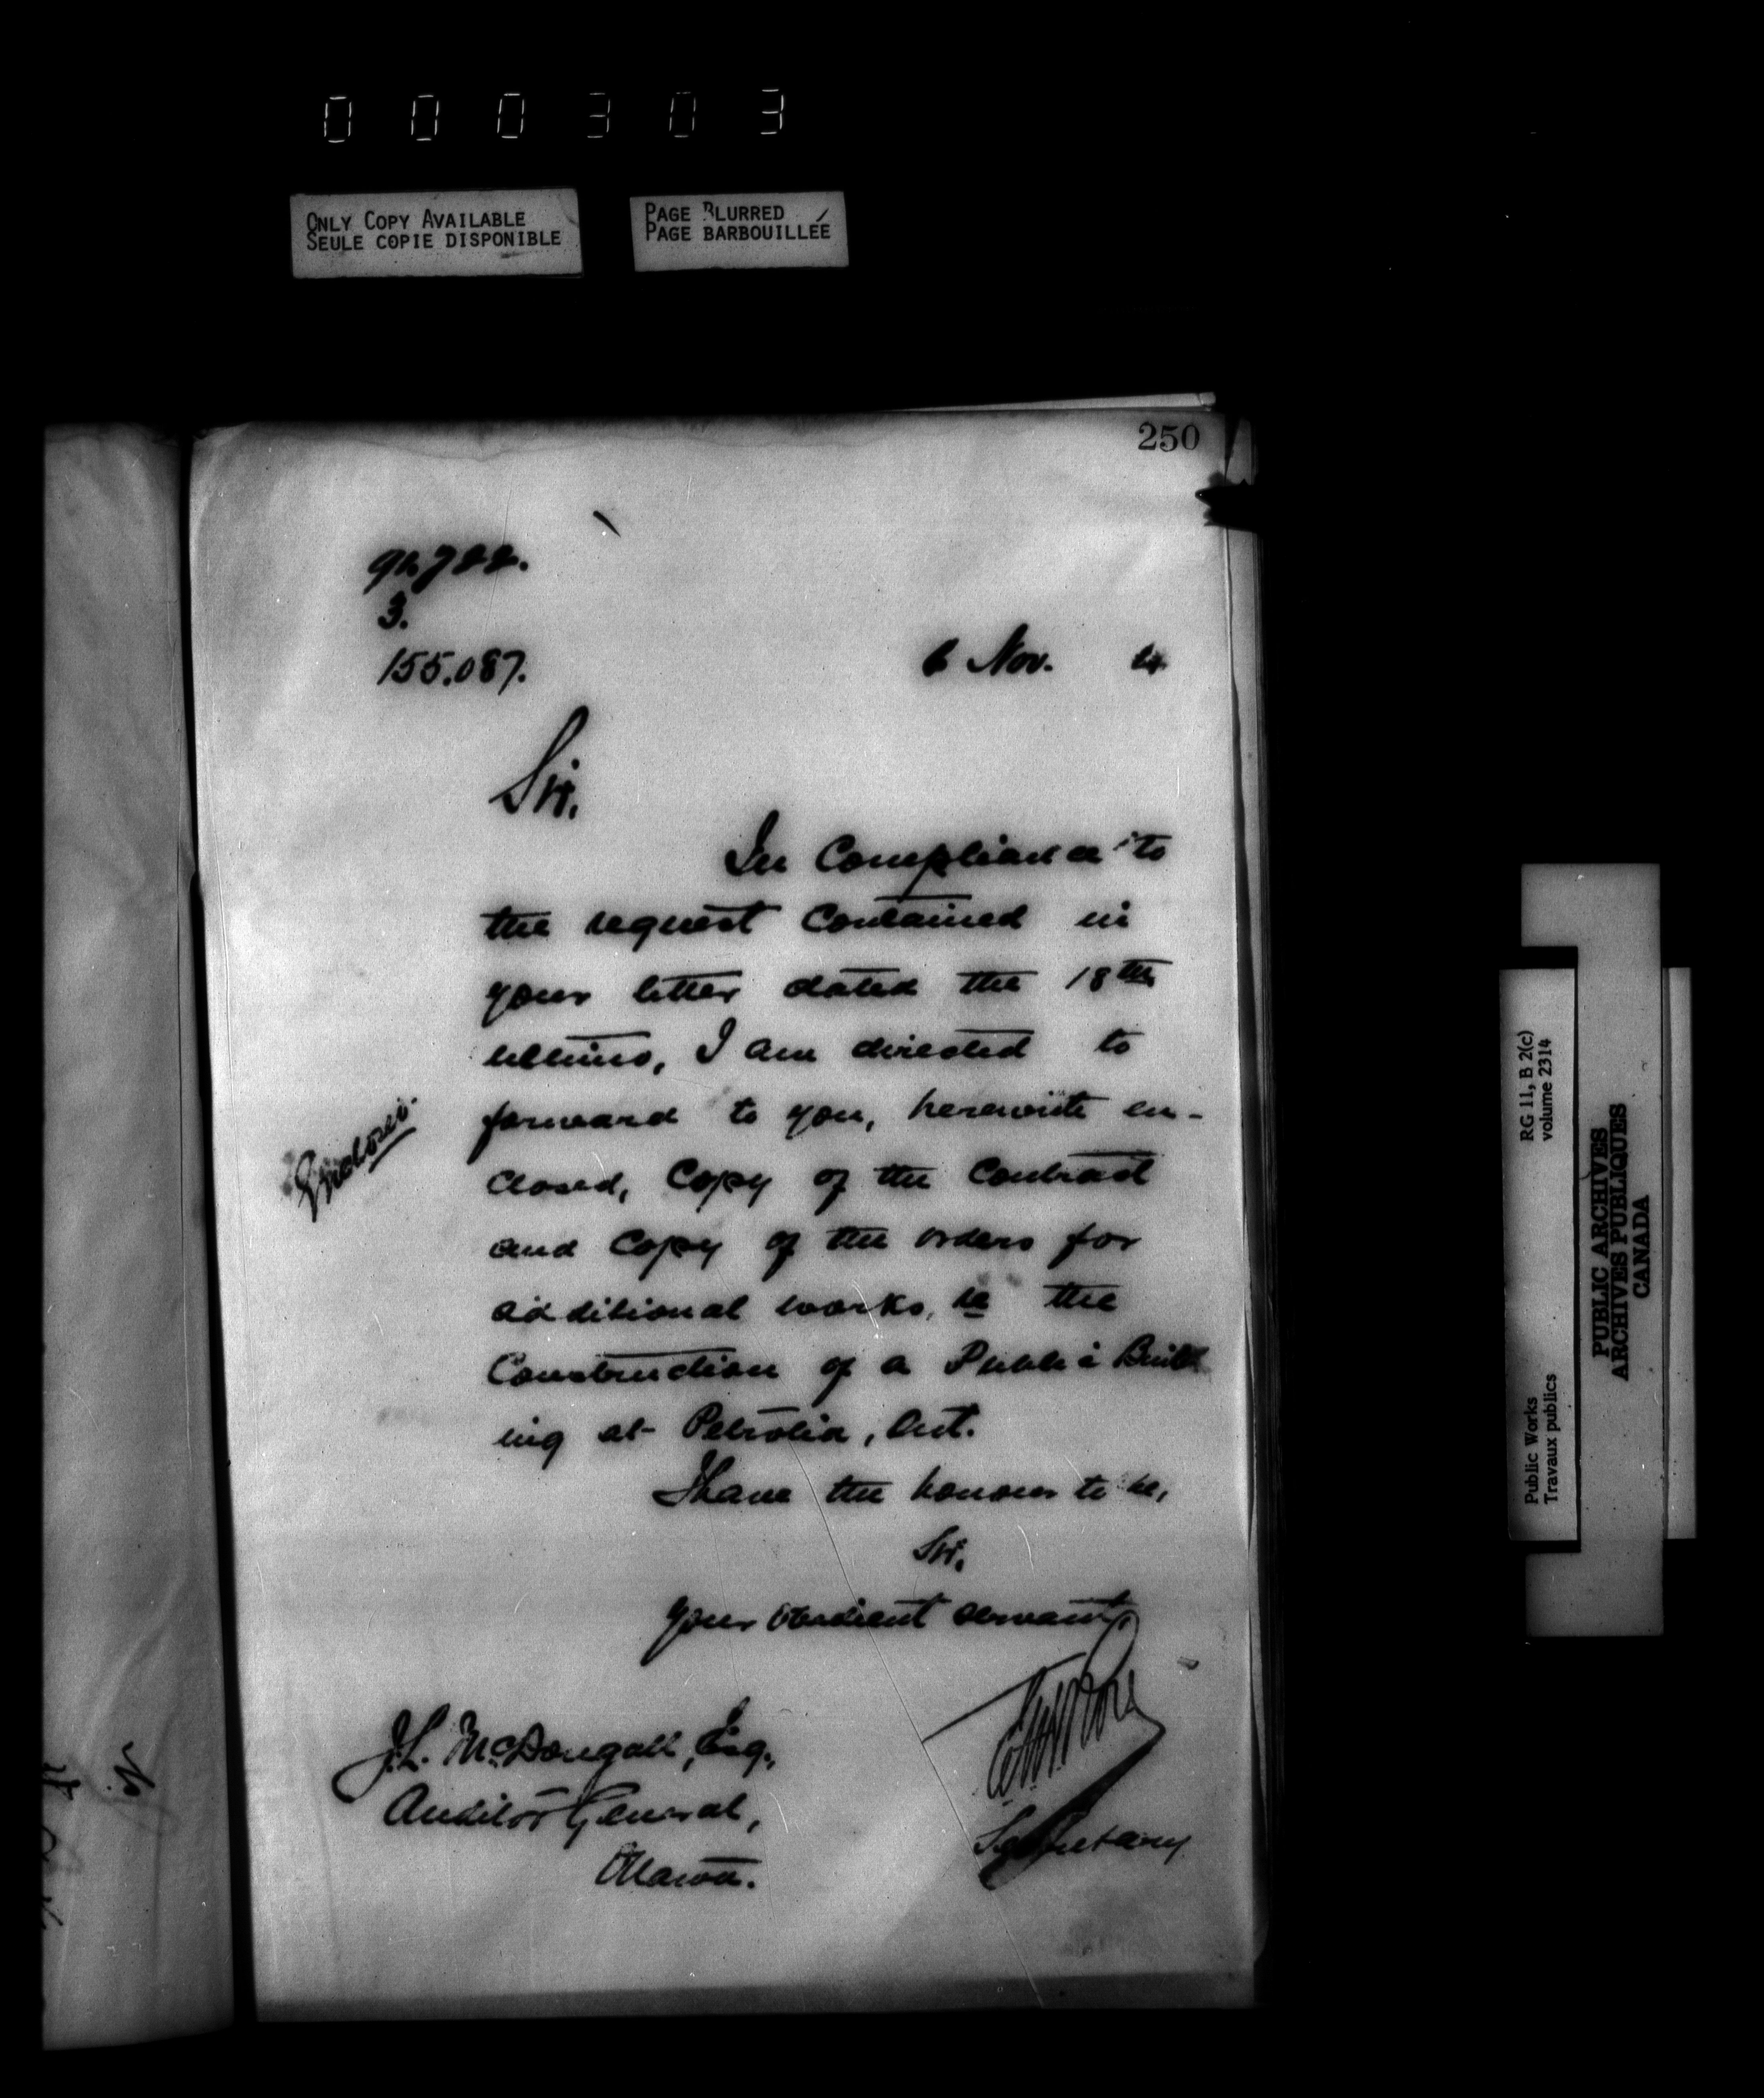 000303
ONLY COPY AVAILABLE
SEULE COPIE DISPONIBLE
PAGE BLURRED
PAGE BARBOUILLÉE
250
3.
155.087.
6 Nov.
Sir,
In Compliance to
the request contained in
your letter dated the 18th
ultimo, I am directed to
forward to you, herewith en-
closed, Copy of the Contract
and Copy of the orders for
additional works, re the
Construction of a Public Build
ing at Petrolia, Ont.
I have the honour to be,
Sir,
Your obedient servant
J.L. McDougall, Esq.,
Auditor General,
Ottawa.
Secretary
RG 11, B 2(c)
volume 2314
Public Works
Travaux publics
PUBLIC ARCHIVES
ARCHIVES PUBLIQUES
CANADA